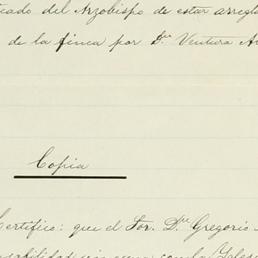 icado del Arzobispo de estar arregla
de la finca por Dn Ventura Ar
Copia
Certifico: que el Sor. Dn Gregorio